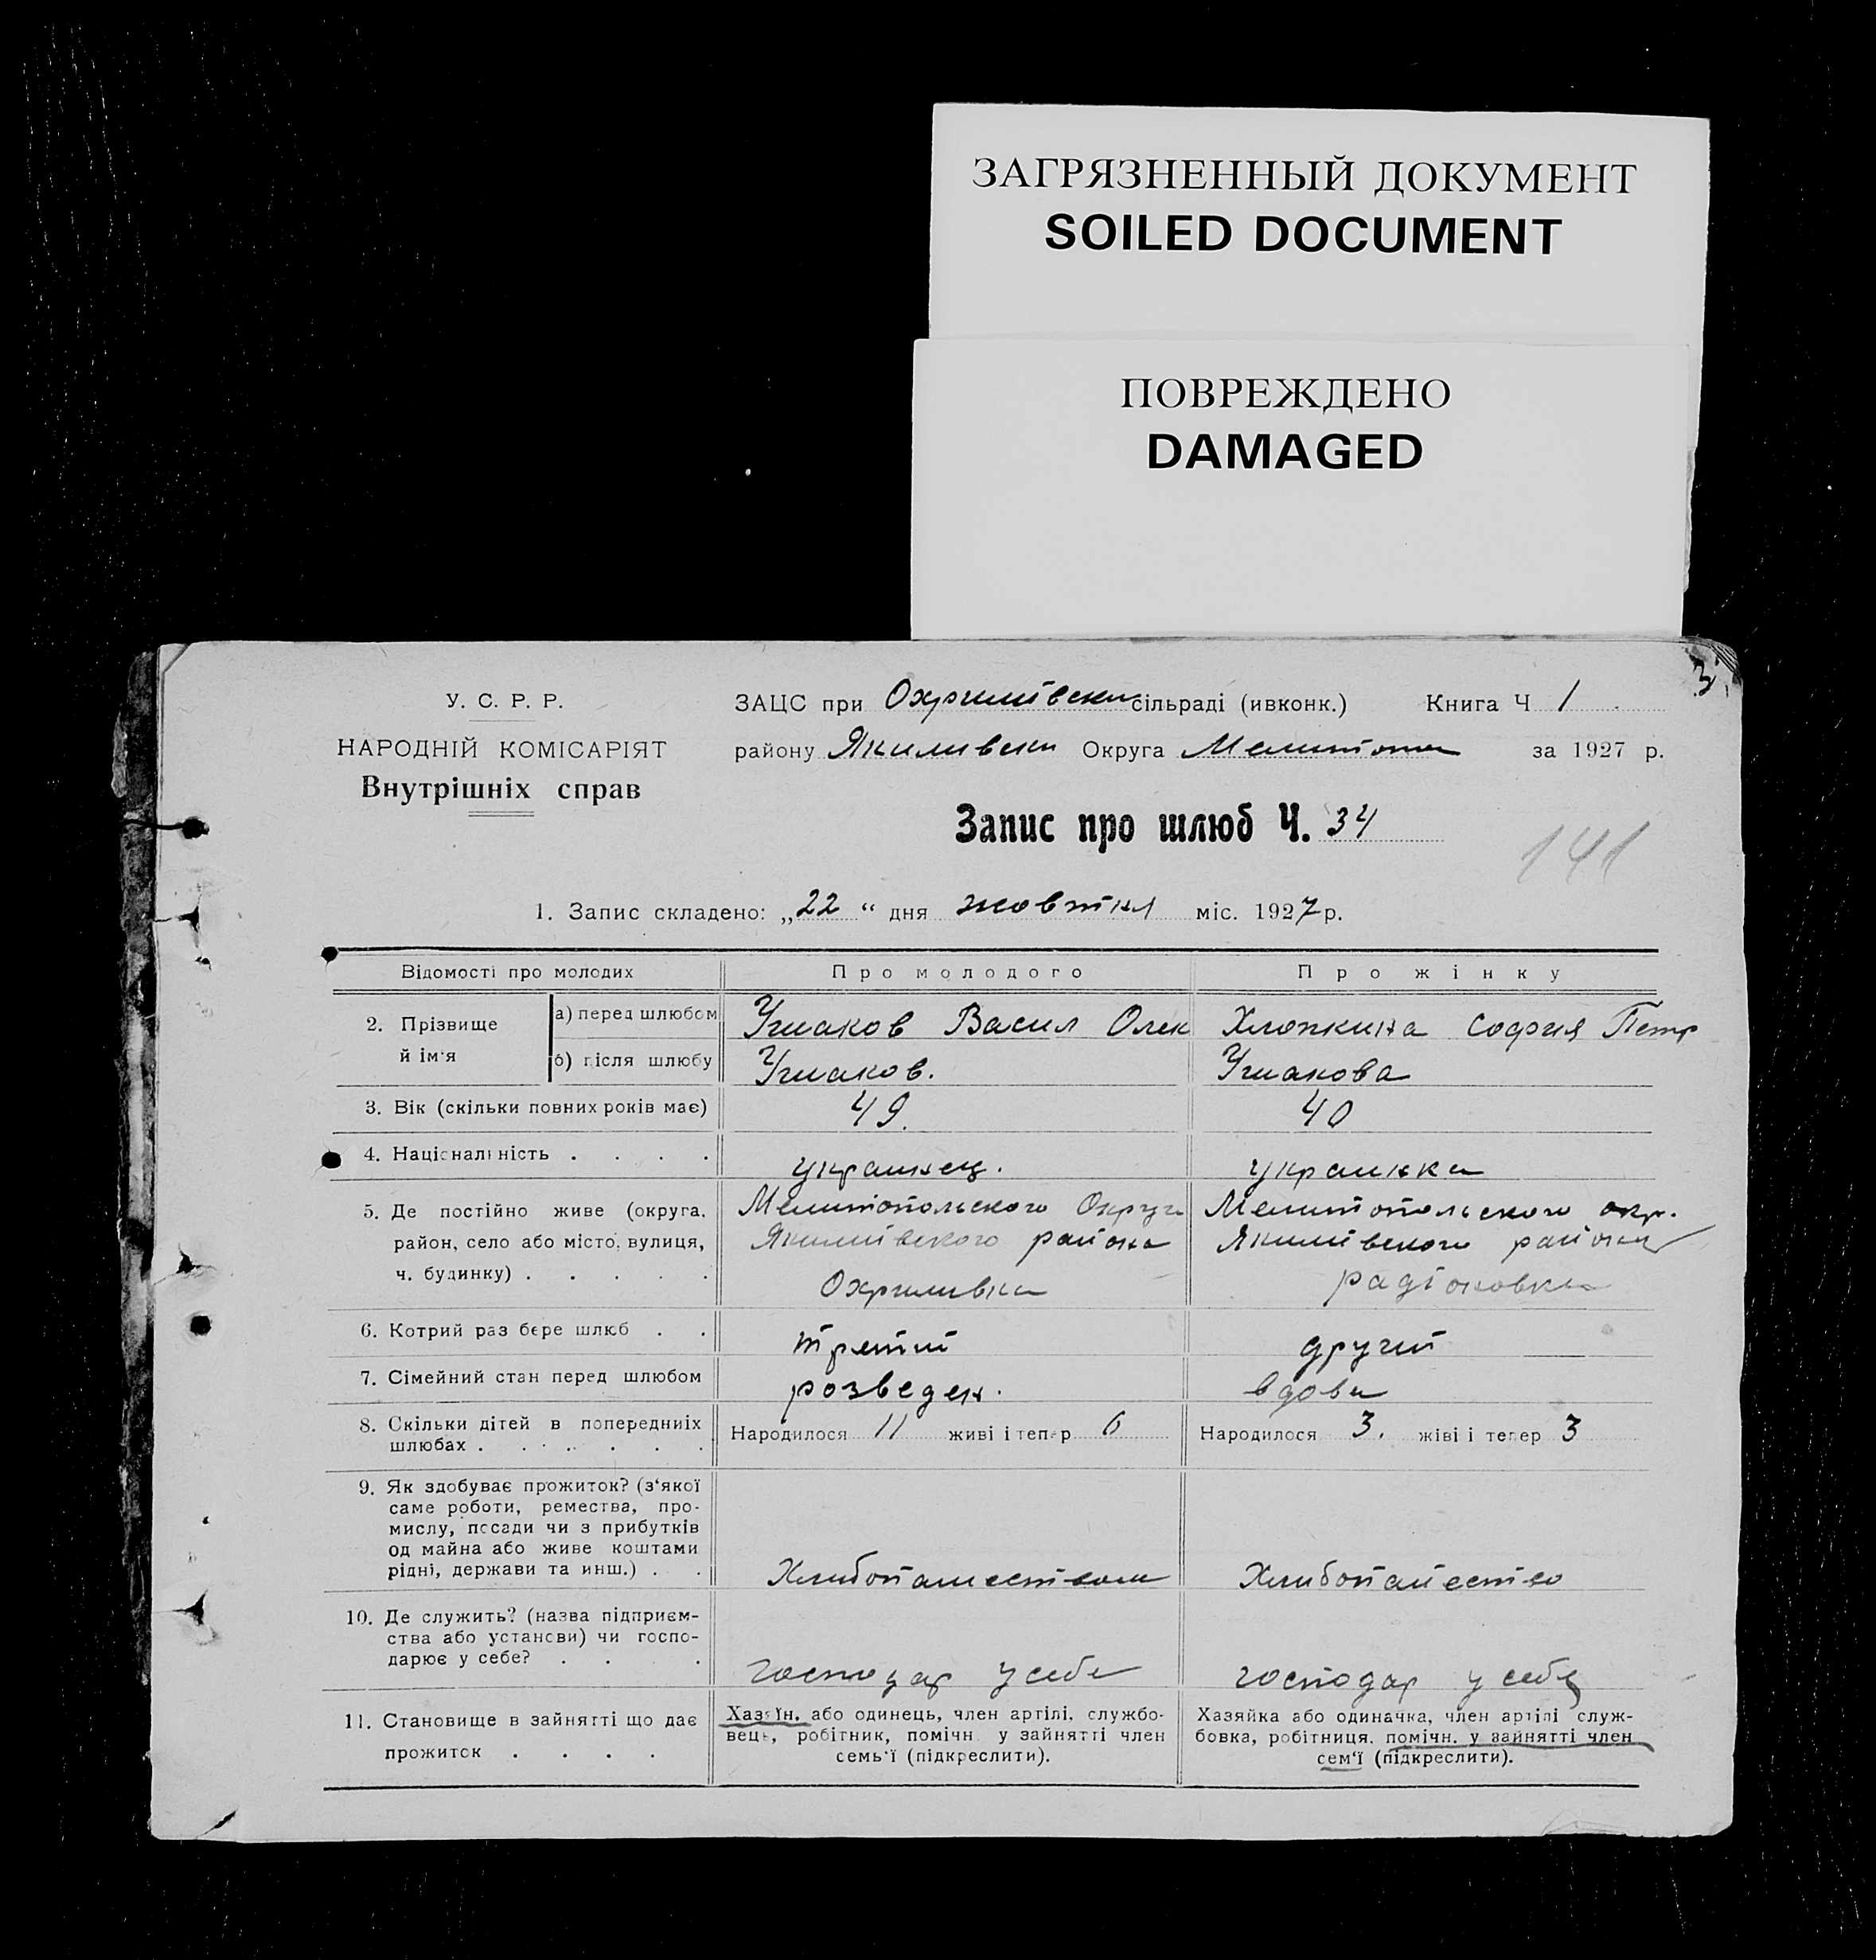 ЗАГРЯЗНЕННЫЙ ДОКУМЕНТ
SOILED DOCUMENT
ПОВРЕЖДЕНО
DAMAGED
3
У. С. Р. Р.
НАРОДНІЙ КОМІСАРІЯТ
Внутрішніх справ
ЗАЦС при Охримівски сільраді (ивконк.) Книга Ч 1
району Якимивски Округа за 1927 р.
Запис про шлюб Ч. 34
141
1. Запис складено: „22“ дня жовтня міс. 1927 р.
Відомості про молодих Про молодого Про жінку
2. Прізвище й ім'я
а) перед шлюбом Ушаков Васил Олек Хлопкина София Петр
б) після шлюбу Ушаков. Ушакова
3. Вік (скільки повних років має) 49. 40
4. Національність . . . . украинец. украинка
5. Де постійно живе (округа, Мелитопольского Округи Мелитопольского окр.
район, село або місто, вулиця, Якимівского района Якимівского района
ч. будинку) . . . . . Охримивка радіоновка
6. Котрий раз бере шлюб . . третий другий
7. Сімейний стан перед шлюбом розведен. вдова
8. Скільки дітей в попередниіх Народилося 11 живі і тепер 6 Народилося 3. жіві і тепер 3
шлюбах . . . . . . .
9. Як здобуває прожиток? (з'якої
саме роботи, ремества, про-
мислу, посади чи з прибутків
од майна або живе коштами
рідні, держави та инш.) . . Хлибопашеством Хлибопашество
10. Де служить? (назва підприєм-
ства або установи) чи госпо-
дарює у себе? . . . господар у себе господар у себе
11. Становище в зайнятті що дає Хазяїн, або одинець, член артілі, службо- Хазяйка або одиначка, член артілі служ-
прожиток . . . . вець, робітник, помічн. у зайнятті член бовка, робітниця, помічн. у зайнятті член
семь'ї (підкреслити). сем'ї (підкреслити).